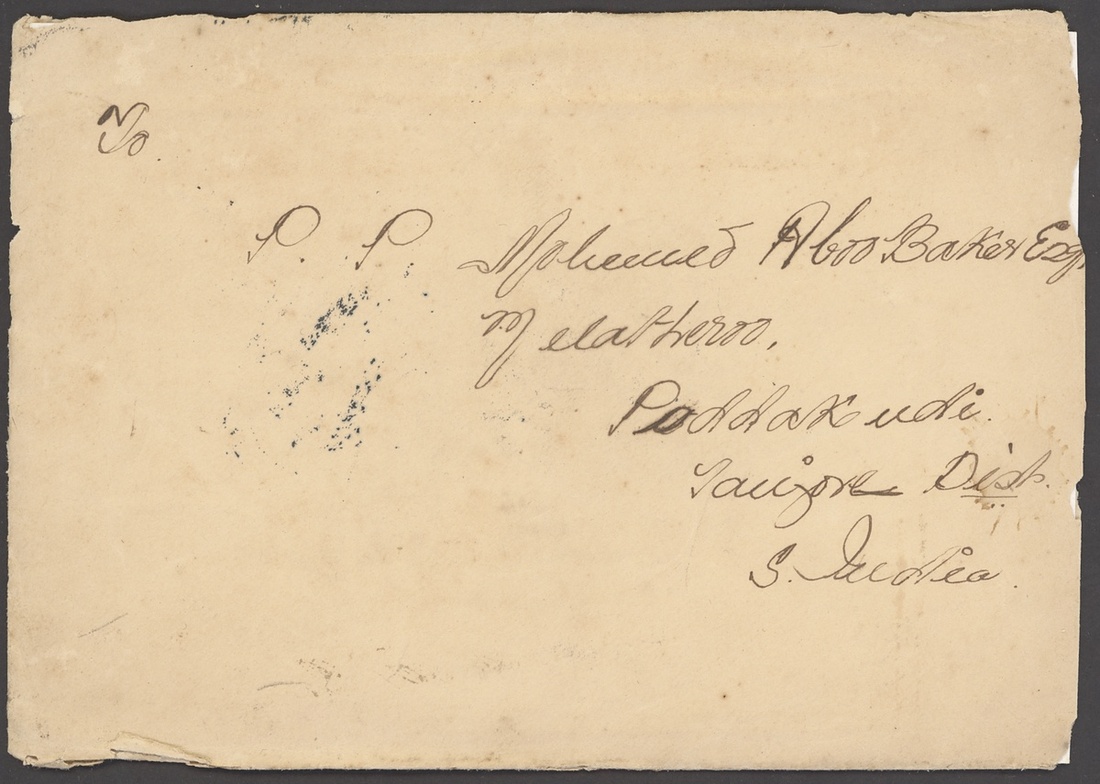 To
P. P. Mohamed Aboo Baker Esq
Melatheroo,
Poddakudi.
Tanjore Dist.
S. India.